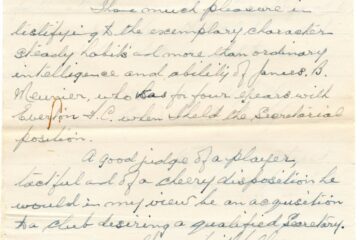 I have much pleasure in
testifying to the exemplary character
steady habits and more than ordinary
intelligence and ability of James B.
Meunier, who was for four years with
Everton F.C. when I held the Secretarial
position.
A good judge of a player,
tactful and of a cheery disposition he
would in my view be an acquisition
to a club desiring a qualified Secretary.